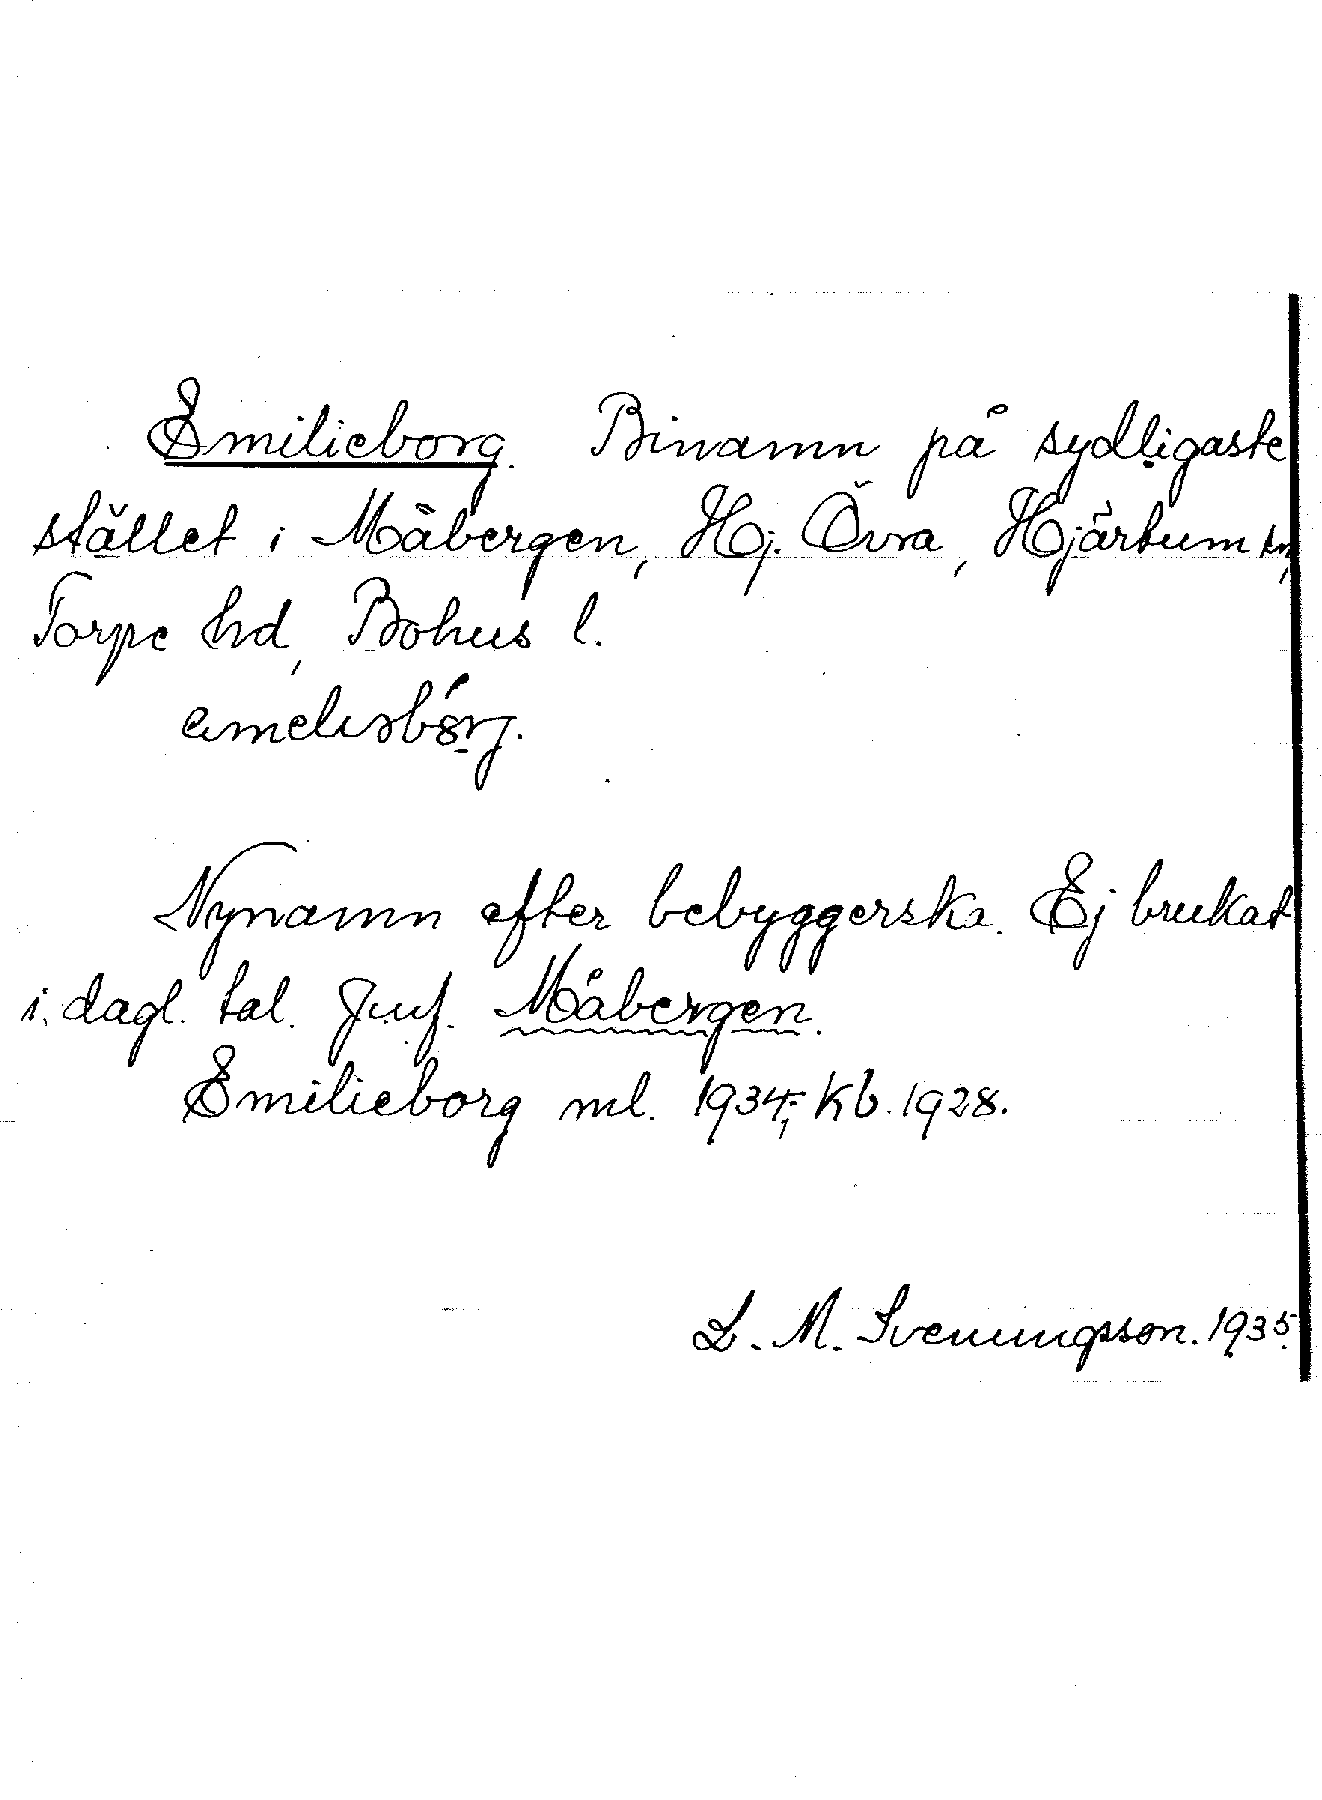 Emilieborg. Binamn på sydligaste
stället i Måbergen, Hj. Övra, Hjärtum sn,
Torpe hd, Bohus l.
Nynamn efter bebyggerska. Ej brukat
i dagl. tal. Jmf. Måbergen.
Emilieborg ml. 1934; Kb. 1928.
L. M. Svenungsson. 1935.